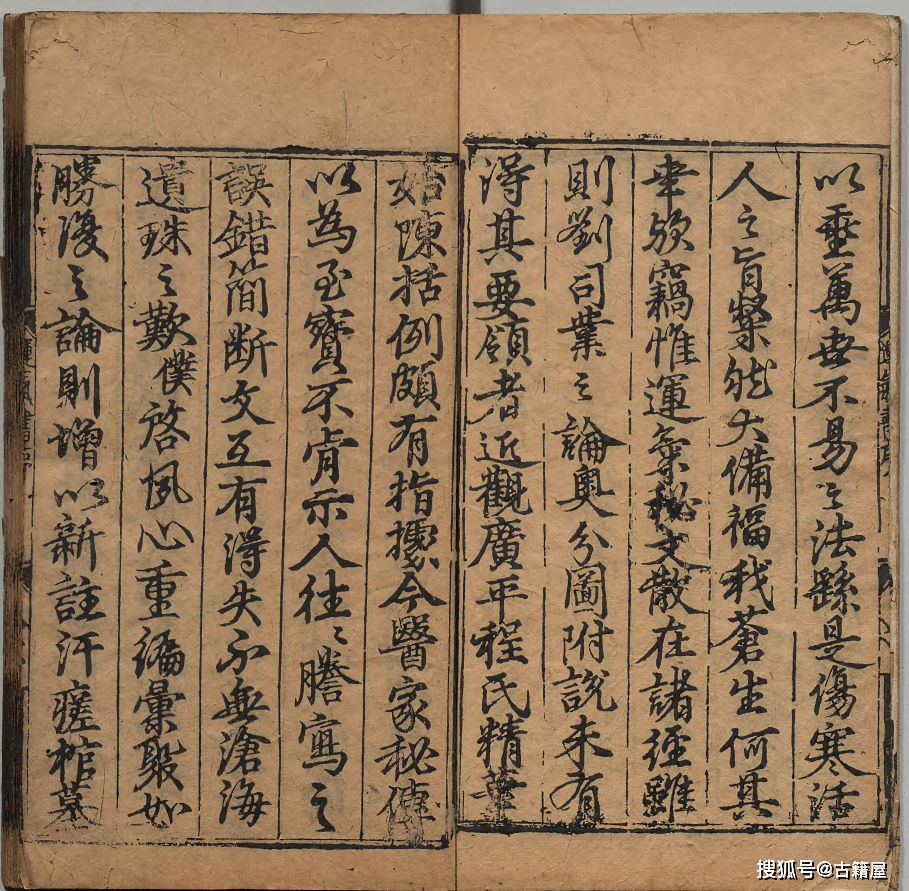 以垂萬世不易之法繇是傷寒活
人之旨粲然大備福我蒼生何其
幸歟竊惟運氣秘文散在諸經雖
則劉司業之論奧分圖附說未有
得其要領者近觀廣平程氏精華
始陳括例頗有指據今醫家秘傳
以為至寶不肯示人往〻謄寫之
誤錯簡断文互有得失不無滄海
遺珠之歎僕啓夙心重編彙聚如
勝復之論則增以新註汗瘥棺墓
搜狐号@古籍屋